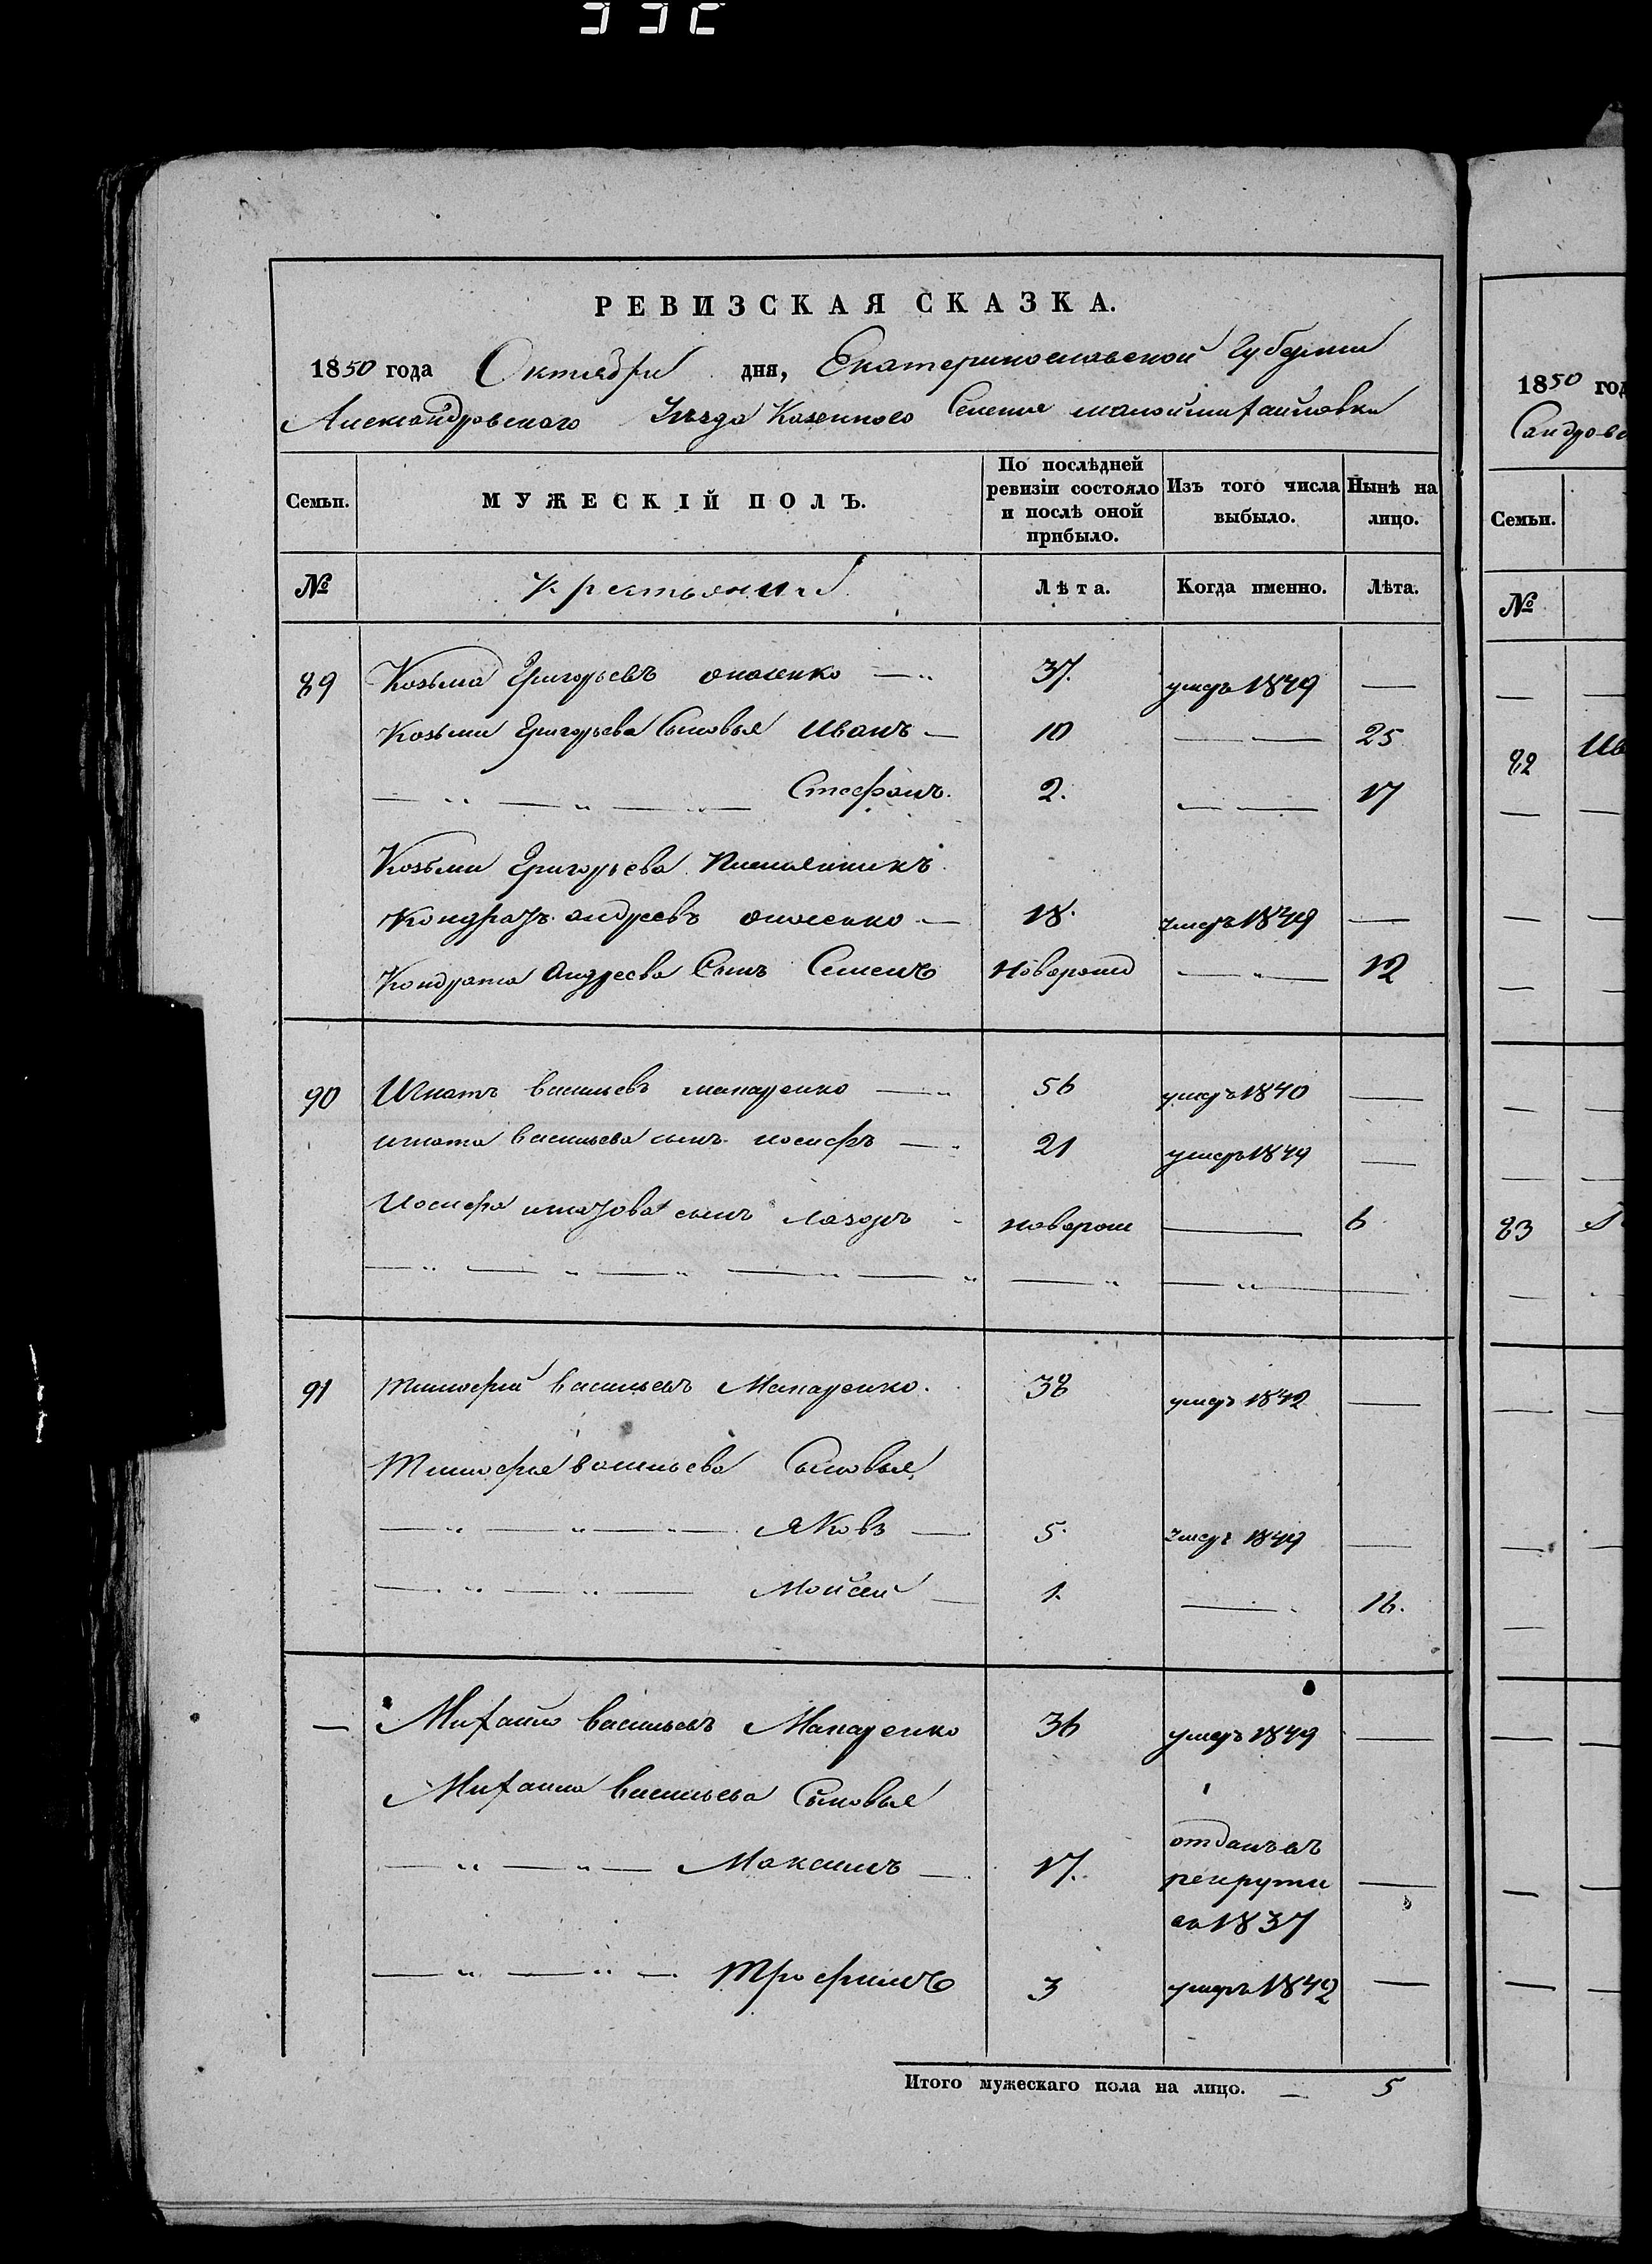 332
РЕВИЗСКАЯ СКАЗКА.
1850 года Октября дня, Екатеринославской Губернии
Александровского Уезда Казенного Селения малоймихайловки
Семьи.
МУЖЕСКІЙ ПОЛЪ.
По послѣдней ревизіи состояло и послѣ оной прибыло.
Изъ того числа выбыло.
Нынѣ на лицо.
№
Крестьяни
Лѣта.
Когда именно.
Лѣта.
89 Козьма Григорьевъ 37. умеръ 1849 —
Козьми Григорьева Сыновья Иванъ — 10 — — 25
— " — " — Стефанъ. 2. — — 17
Козьми Григорьева Племянникъ
Кондратъ андреевъ — 18. умеръ 1849 —
Кондрата Андреева Сынъ Семенъ новорожд — " — 12
90 Игнатъ васильевъ макаренко — " 56 умеръ 1840 —
игната васильева сынъ иосифъ — 21 умеръ 1849 —
Иосифа игнатова сынъ лазарь новорож — 6
— " — " — " — " — " — " — " —
91 тимофей васильевъ Макаренко. 38 умеръ 1842 —
Тимофея васильева Сыновья
— " — " — " — Яковъ — 5. умеръ 1849 —
— " — " — Мойсей — 1. — 16.
— Михайло васильевъ Макаренко 36 умеръ 1849 —
Михаила васильева Сыновья
— " — " — Максимъ — 17. отданъ въ
рекруты —
въ 1837
— " — " — Трофимъ 3 умеръ 1842 —
Итого мужескаго пола на лицо. — 5
1850 год
Сандровс
Семьи.
№
82 Ив
83